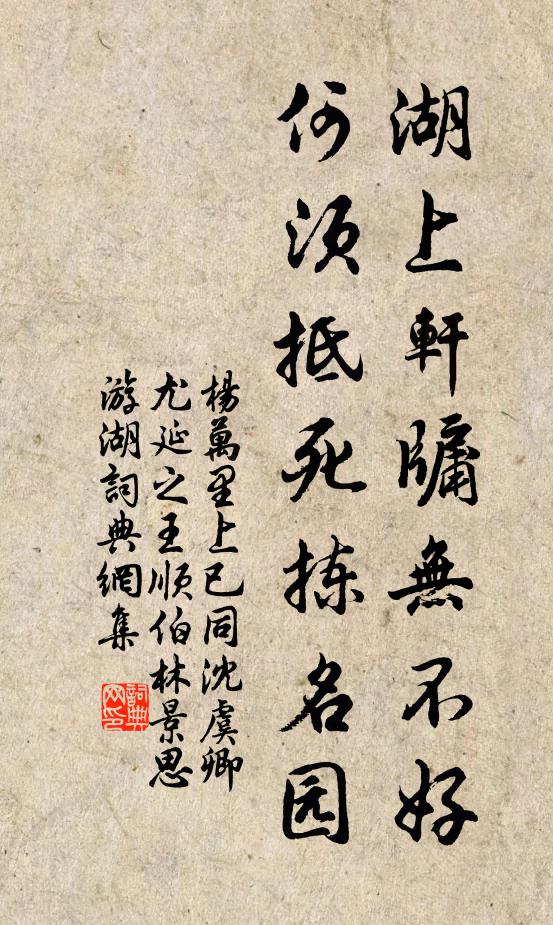 湖上軒牗無不好
何須抵死拣名园
楊萬里上巳同沈虞卿
尤延之王順伯林景思
游湖詞典網集
詞典
网印